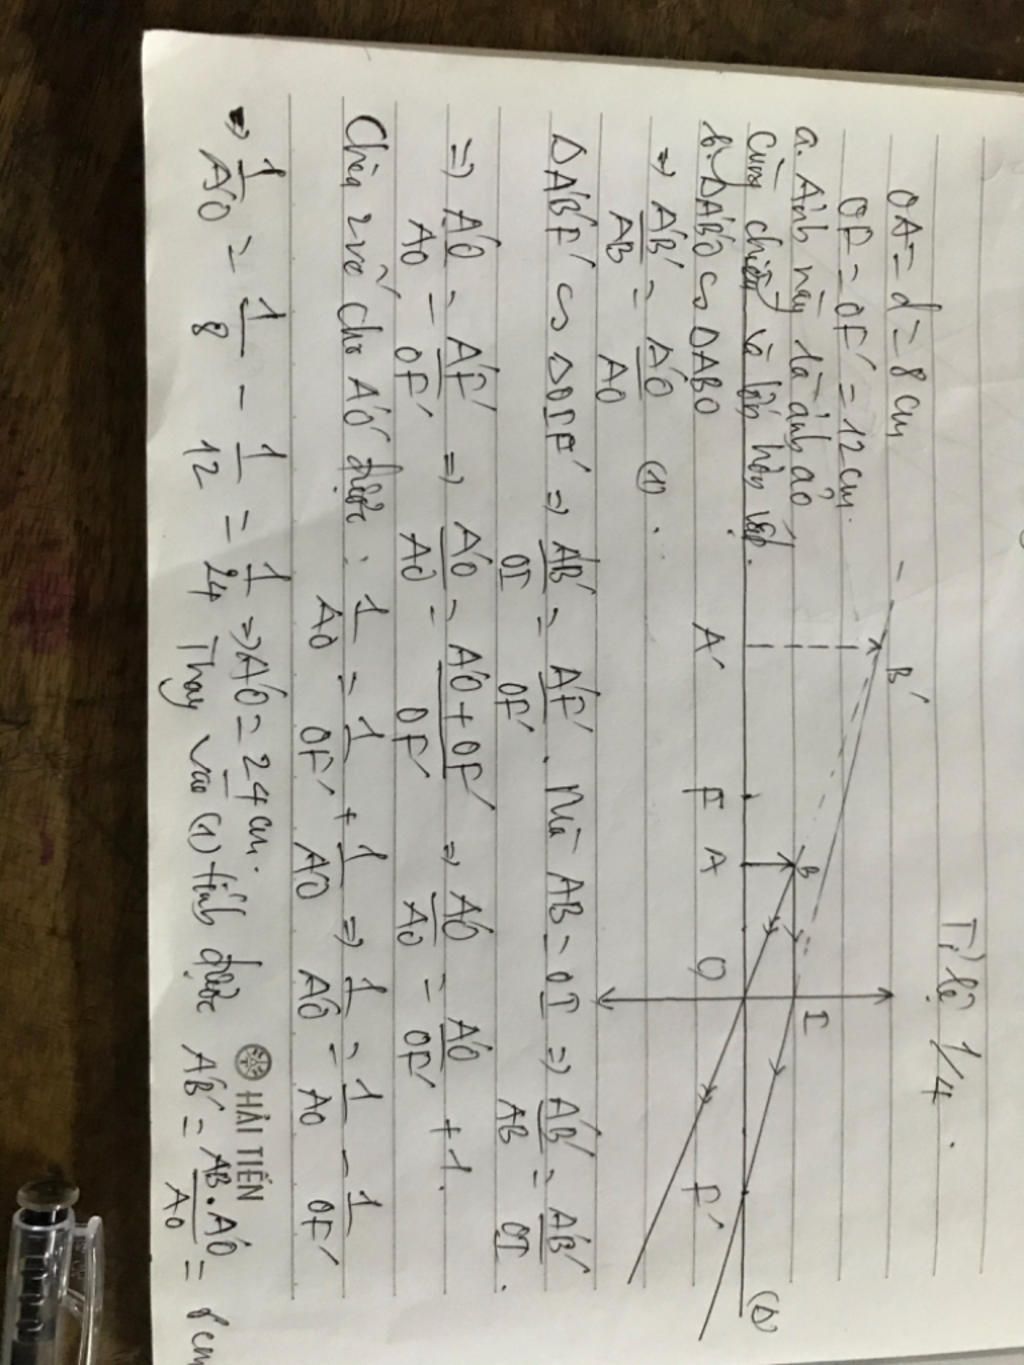 Tỉ lệ 1/4.
OA = d = 8 cm
OF = OF' = 12 cm.
a. Ảnh này là ảnh ảo
cùng chiều và lớn hơn vật.
B'
B
I
A' F A O F' (Δ)
b. ΔA'B'O ∽ ΔABO
⇒ A'B'/AB = A'O/AO (1).
ΔA'B'F' ∽ ΔOIF' ⇒ A'B'/OI = A'F'/OF'. Mà AB = OI ⇒ A'B'/AB = A'B'/OI.
⇒ A'O/AO = A'F'/OF' ⇒ A'O/AO = A'O + OF'/OF' ⇒ A'O/AO = A'O/OF' + 1.
Chia 2 vế cho A'O được: 1/AO = 1/OF' + 1/A'O ⇒ 1/A'O = 1/AO - 1/OF'
⇒ 1/A'O = 1/8 - 1/12 = 1/24 ⇒ A'O = 24 cm. Thay vào (1) tính được A'B' = AB.A'O/AO = cm
HẢI TIẾN